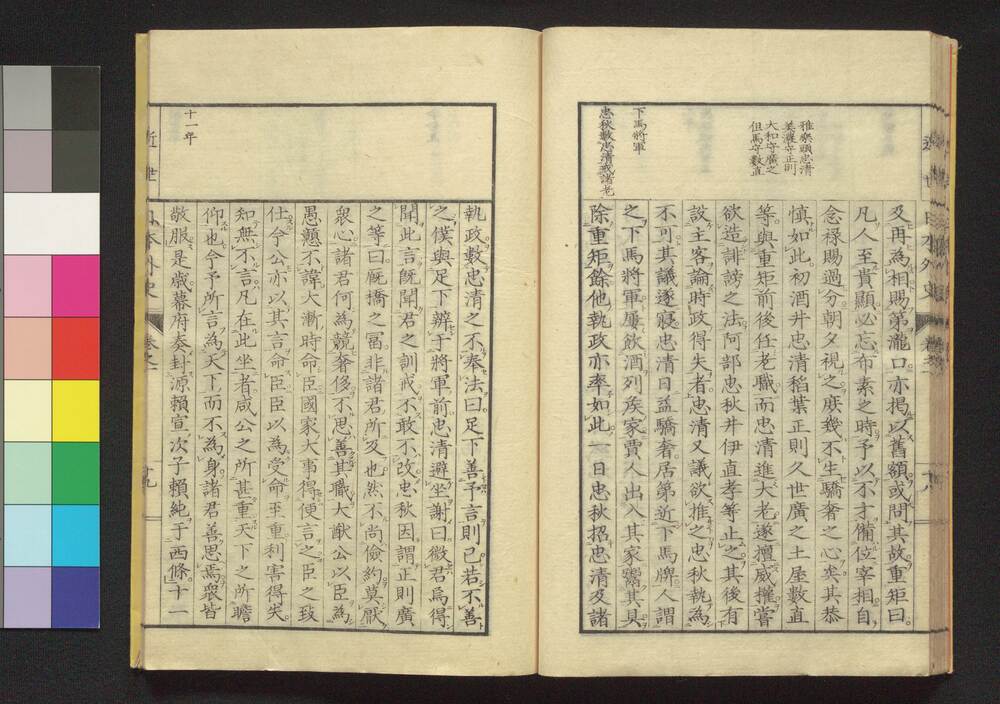 雅樂頭忠清
美濃守正則
大和守廣之
但馬守數直
下馬將軍
忠秋數忠清戒諸老
及再為相賜第瀧口亦揭以舊額或問其故重矩曰
凡人至貴顯必忘布素之時予以不才備位宰相自
念祿賜過分朝夕視之庶幾不生驕奢之心矣其恭
慎如此初酒井忠清稻葉正則久世廣之土屋數直
等與重矩前後任老職而忠清進大老遂擅威權嘗
欲造誹謗之法阿部忠秋井伊直孝等止之其後有
設主客論時政得失者忠清又議欲推之忠秋執為
不可其議遂寢忠清日益驕奢居第近下馬牌人謂
之下馬將軍屢飲酒列侯家賈人出入其家鬻其具
除重矩餘他執政亦率如此一日忠秋招忠清及諸
十一年
執政數忠清之不奉法曰足下善予言則已若不善
之僕與足下辨于將軍前忠清避坐謝曰微君焉得
聞此言既聞君之訓戒不敢不改忠秋因謂正則廣
之等曰厩橋之冨非諸君所及也然不尚儉約莫厭
衆心諸君何為競奢侈不思善其職大猷公以臣為
愚戇不諱大漸時命臣國家大事得便言之臣之致
仕今公亦以其言命臣臣以為受命至重利害得失
知無不言凡在此坐者咸公之所甚重天下之所瞻
仰也今予所言為天下而不為身諸君善思焉衆皆
敬服是歲幕府奏封源賴宣次子賴純于西條十一